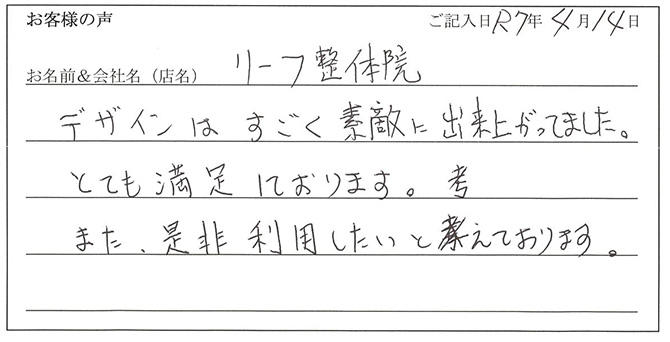 お客様の声 ご記入日 R7年 4月14日
お名前&会社名（店名） リーフ整体院
デザインは すごく 素敵に 出来上がってました。
とても 満足 ております。 考
また、是非 利用したいと 考えております。